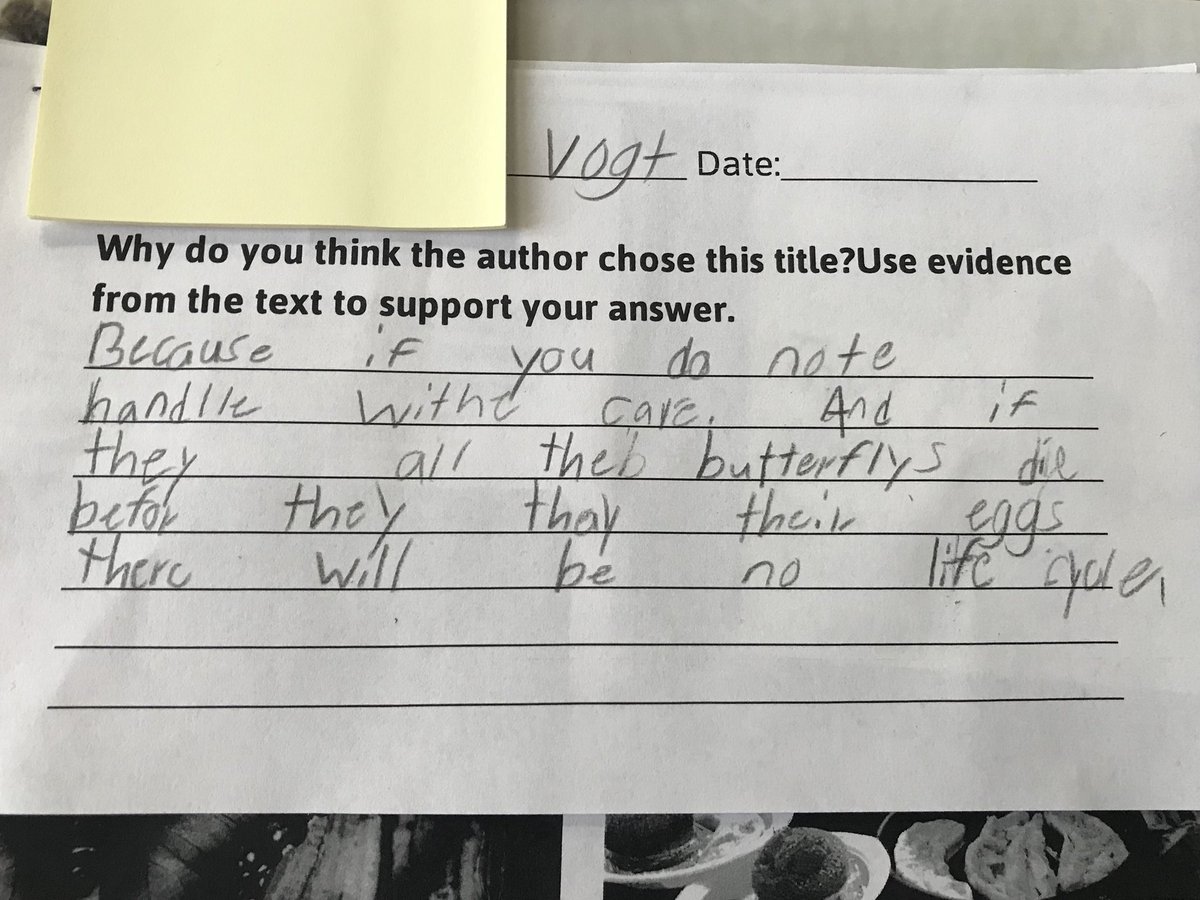 Vogt Date:
Why do you think the author chose this title?Use evidence
from the text to support your answer.
Because if you do note
handlle withe care. And if
they all the butterflys die
befor they thay their eggs
there will be no life cycle,